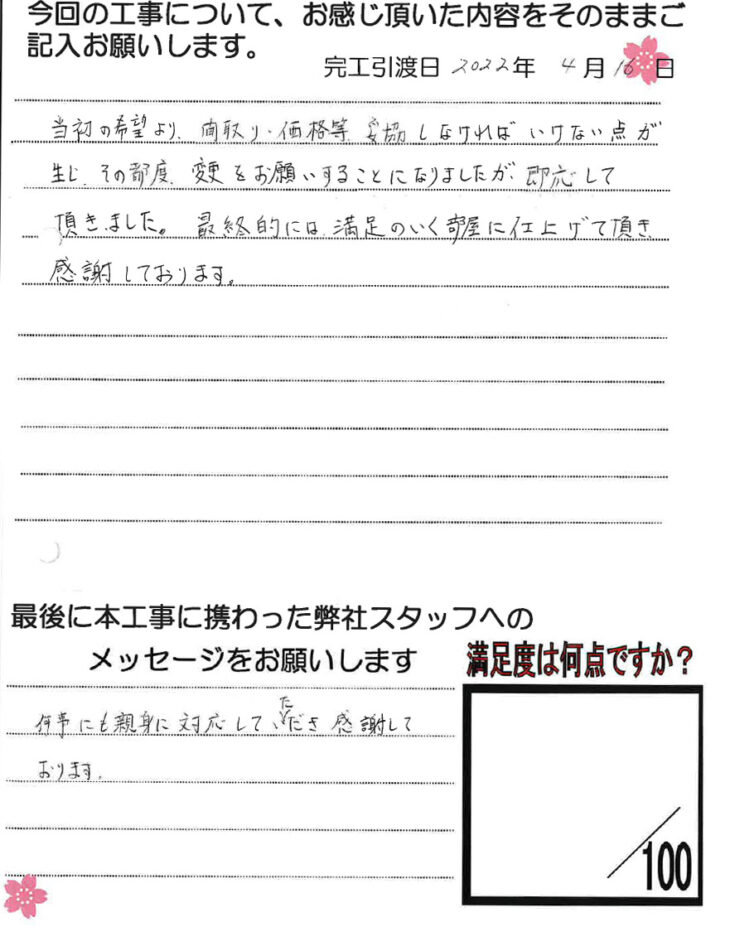 今回の工事について、お感じ頂いた内容をそのままご
記入お願いします。
完工引渡日 2022年 4月 16日
当初の希望より、間取り・価格等 妥協しなければいけない点が
生じ、その都度、変更をお願いすることになりましたが、即応して
頂きました。 最終的には、満足のいく部屋に仕上げて頂き
感謝しております。
最後に本工事に携わった弊社スタッフへの
メッセージをお願いします
満足度は何点ですか？
何事にも親身に対応していただき 感謝して
おります。
/100